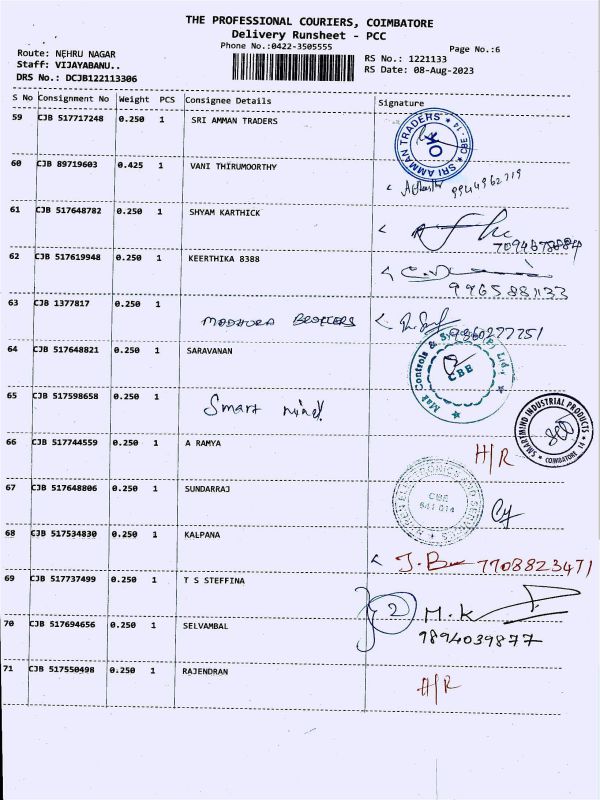 THE PROFESSIONAL COURIERS, COIMBATORE
Delivery Runsheet - PCC
Phone No.:0422-3505555
Page No.:6
Route: NEHRU NAGAR
Staff: VIJAYABANU..
DRS No.: DCJB122113306
RS No.: 1221133
RS Date: 08-Aug-2023
S No Consignment No Weight PCS Consignee Details Signature
59 CJB 517717248 0.250 1 SRI AMMAN TRADERS
SRI AMMAN TRADERS * CBE - 14 *
60 CJB 89719603 0.425 1 VANI THIRUMOORTHY
61 CJB 517648782 0.250 1 SHYAM KARTHICK
62 CJB 517619948 0.250 1 KEERTHIKA 8388
63 CJB 1377817 0.250 1
MADHURA BROTHERS 9360277251
64 CJB 517648821 0.250 1 SARAVANAN
CBE
65 CJB 517598658 0.250 1
Smart mind
SMARTMIND INDUSTRIAL PRODUCTS
* COIMBATORE 14 *
66 CJB 517744559 0.250 1 A RAMYA
H/R
67 CJB 517648806 0.250 1 SUNDARRAJ
CBE
641 014
68 CJB 517534830 0.250 1 KALPANA
7708823471
69 CJB 517737499 0.250 1 T S STEFFINA
2 M.K
70 CJB 517694656 0.250 1 SELVAMBAL
9894039877
71 CJB 517550498 0.250 1 RAJENDRAN
H/R